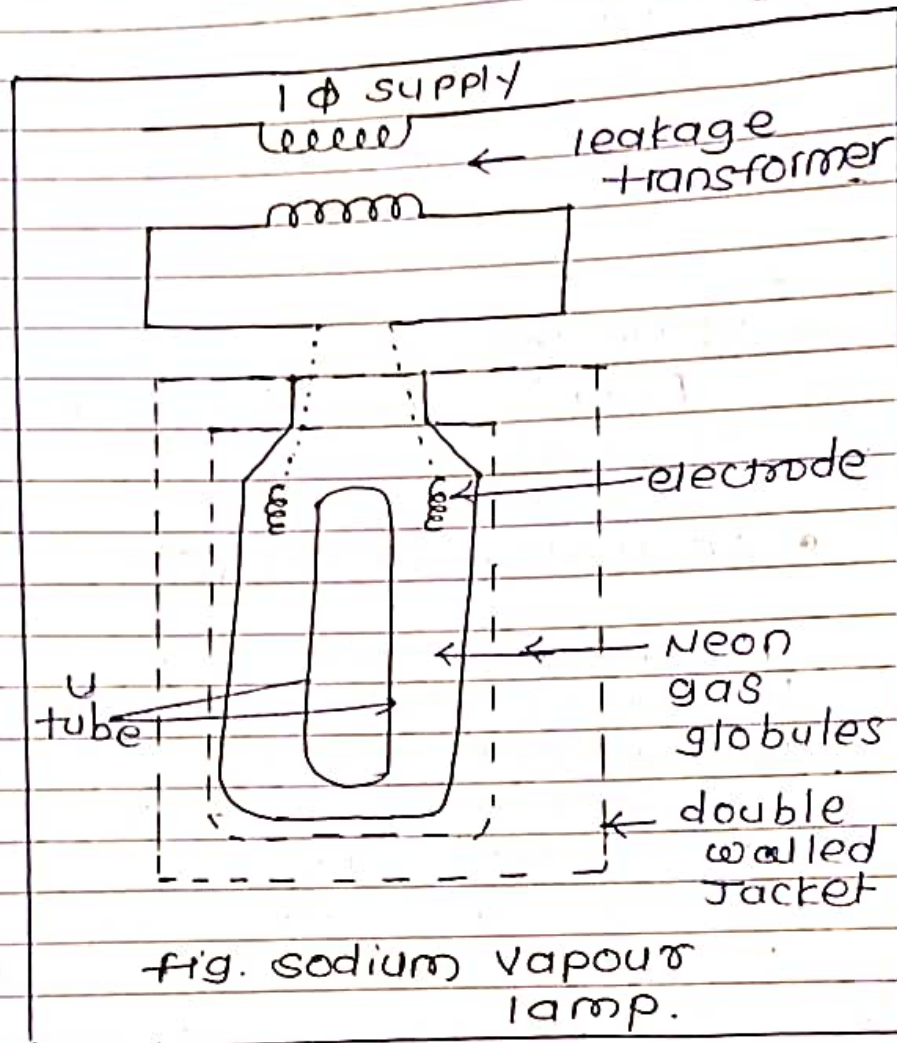 1 ϕ supply
leakage
transformer
electrode
Neon
gas
globules
U
tube
double
walled
Jacket
fig. sodium vapour
lamp.